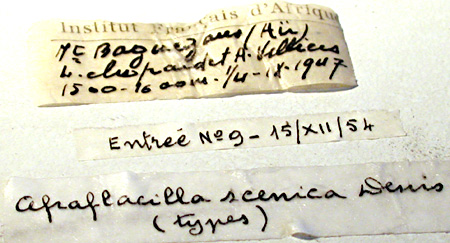 Institut Français d'Afrique
Mt Baguezans (Aïr)
L. Chopard et A. Villiers
1500-1600m. 1/4-IX-1947
Entrée No 9 - 15/XII/54
Afraflacilla scenica Denis
(types)